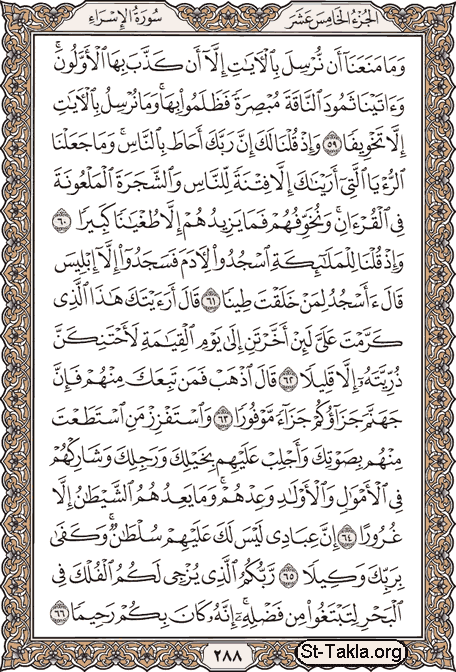 الجزء الخامس عشر
سورة الإسراء
وَمَا مَنَعَنَا أَن نُّرْسِلَ بِالْآيَاتِ إِلَّا أَن كَذَّبَ بِهَا الْأَوَّلُونَ ۚ
وَءَاتَيْنَا ثَمُودَ النَّاقَةَ مُبْصِرَةً فَظَلَمُوا بِهَا ۚ وَمَا نُرْسِلُ بِالْآيَاتِ
إِلَّا تَخْوِيفًا ٥٩ وَإِذْ قُلْنَا لَكَ إِنَّ رَبَّكَ أَحَاطَ بِالنَّاسِ ۚ وَمَا جَعَلْنَا
الرُّءْيَا الَّتِي أَرَيْنَاكَ إِلَّا فِتْنَةً لِّلنَّاسِ وَالشَّجَرَةَ الْمَلْعُونَةَ
فِي الْقُرْءَانِ ۚ وَنُخَوِّفُهُمْ فَمَا يَزِيدُهُمْ إِلَّا طُغْيَانًا كَبِيرًا ٦٠
وَإِذْ قُلْنَا لِلْمَلَائِكَةِ اسْجُدُوا لِآدَمَ فَسَجَدُوا إِلَّا إِبْلِيسَ
قَالَ ءَأَسْجُدُ لِمَنْ خَلَقْتَ طِينًا ٦١ قَالَ أَرَءَيْتَكَ هَٰذَا الَّذِي
كَرَّمْتَ عَلَيَّ لَئِنْ أَخَّرْتَنِ إِلَىٰ يَوْمِ الْقِيَامَةِ لَأَحْتَنِكَنَّ
ذُرِّيَّتَهُ إِلَّا قَلِيلًا ٦٢ قَالَ اذْهَبْ فَمَن تَبِعَكَ مِنْهُمْ فَإِنَّ
جَهَنَّمَ جَزَاؤُكُمْ جَزَاءً مَّوْفُورًا ٦٣ وَاسْتَفْزِزْ مَنِ اسْتَطَعْتَ
مِنْهُم بِصَوْتِكَ وَأَجْلِبْ عَلَيْهِم بِخَيْلِكَ وَرَجِلِكَ وَشَارِكْهُمْ
فِي الْأَمْوَالِ وَالْأَوْلَادِ وَعِدْهُمْ ۚ وَمَا يَعِدُهُمُ الشَّيْطَانُ إِلَّا
غُرُورًا ٦٤ إِنَّ عِبَادِي لَيْسَ لَكَ عَلَيْهِمْ سُلْطَانٌ ۚ وَكَفَىٰ
بِرَبِّكَ وَكِيلًا ٦٥ رَّبُّكُمُ الَّذِي يُزْجِي لَكُمُ الْفُلْكَ فِي
الْبَحْرِ لِتَبْتَغُوا مِن فَضْلِهِ ۚ إِنَّهُ كَانَ بِكُمْ رَحِيمًا ٦٦
٢٨٨
St-Takla.org